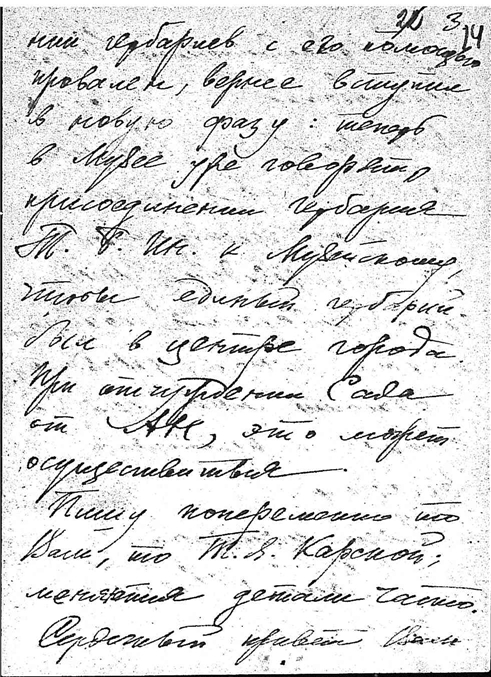 3
14
нии гербариев с его помощью
провален, вернее вступил
в новую фазу: теперь
в Музее уже говорят о
присоединении гербария
Т. Б. Ин. к Музейскому,
чтобы единый гербарий
был в центре города.
При отчуждении Сада
от АН, это может
осуществиться.
Пишу попеременно то
Вам, то Т. Я. Карской;
меняются детали часто.
Сердечный привет Вам